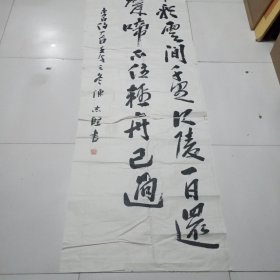 彩雲間千里江陵一日還
啼不住輕舟已過
李白詩
之冬
書